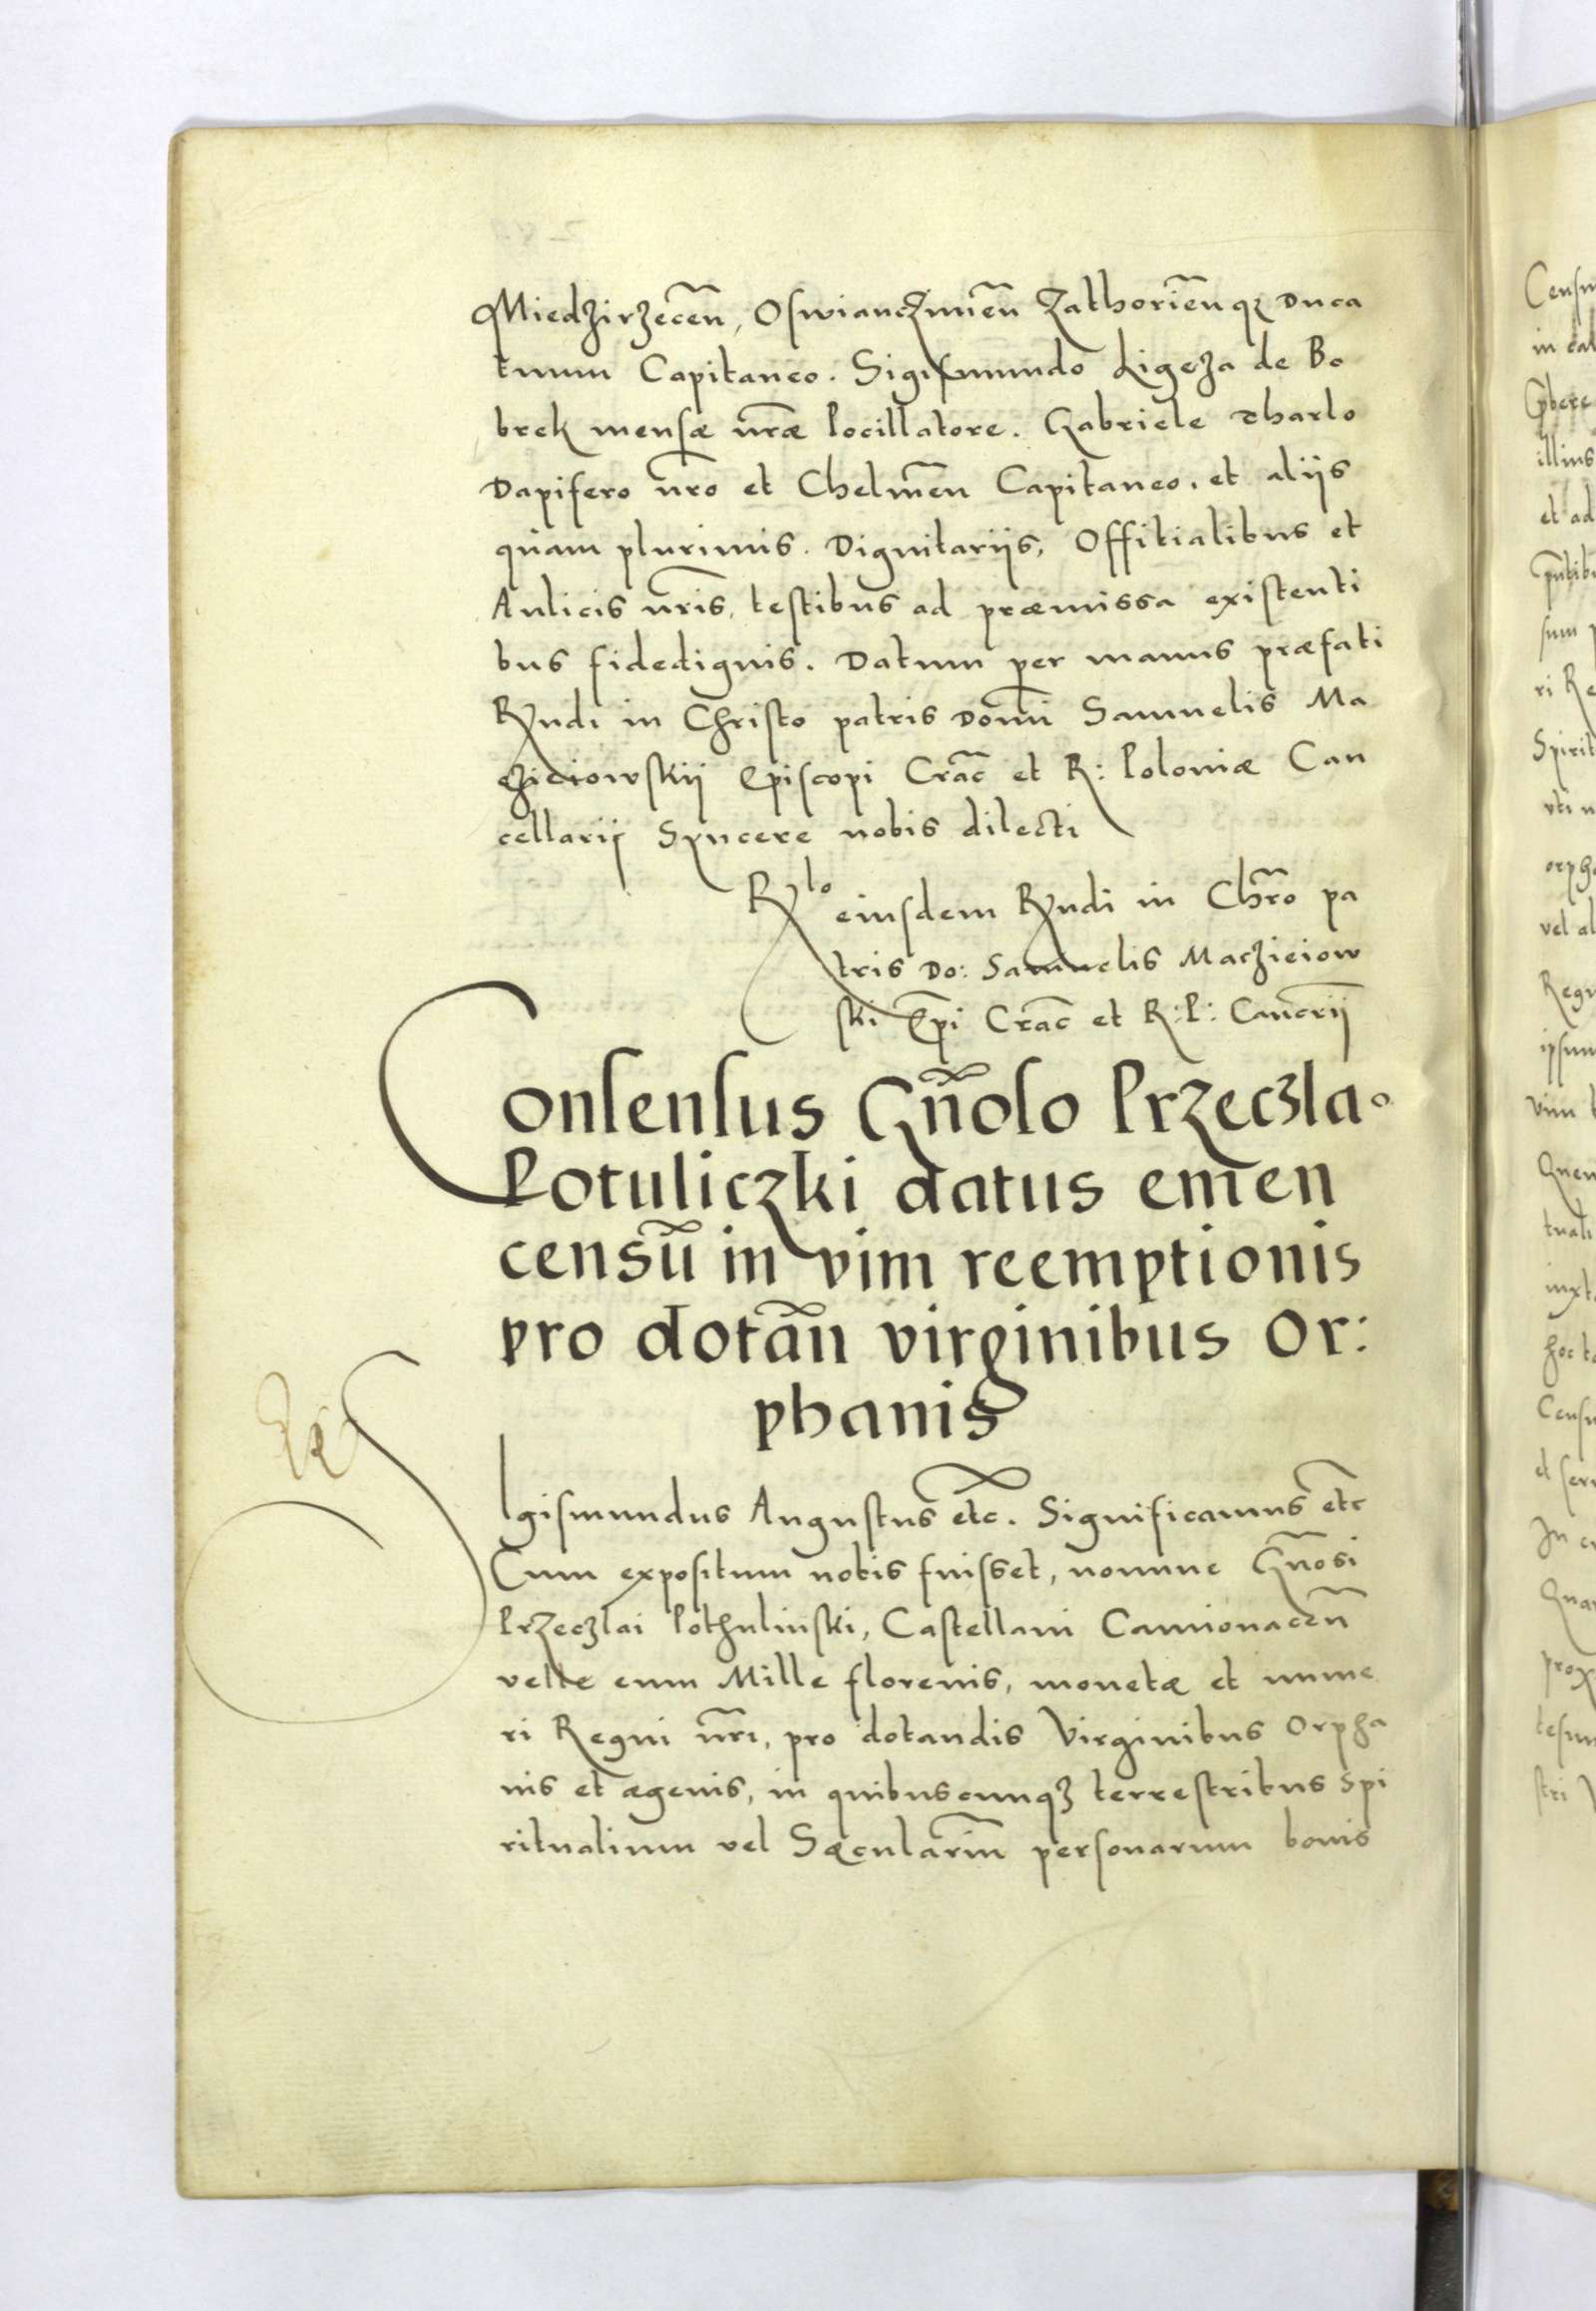 Miedzirzecen̄, Oswianczimen̄ Zathorien̄ q̨ Duca
tuum Capitaneo. Sigismundo Ligeza de Bo
brek mensæ nr̄æ Pocillatore. Gabriele Tharlo
Dapifero nr̄o et Chelmen̄ Capitaneo. et aliis
quam plurimis. Dignitariis, Offitialibus et
Aulicis nr̄is, testibus ad præmissa existenti
bus fidedignis. Datum per manus præfati
Rvndi in Christo patris Domı̄ Samuelis Ma
czieiowskii Episcopi Crac̄ et R: Poloniæ Can
cellarij Syncere nobis dilecti
Rlo eiusdem Rvndi in Chr̄o pa
tris Do: Samuelis Maczieiow
ski Ep̄i Crac̄ et R: P: Canc̄rii
Consensus Gn̄oso Przeczla
Potuliczki datus emen̄
censū in vim reemptionis
pro dotan̄ virginibus Or:
phanis
SIgismundus Augustus etc̄. Significamus etc̄
Cum expositum nobis fuisset, nomine Gn̄osi
Przeczlai Pothulinski, Castellani Camionacen̄
velle eum Mille florenis, monetæ et nume
ri Regni nr̄i, pro dotandis Virginibus Orpha
nis et ægenis, in quibuscunqꝫ terrestribus Spi
ritualium vel Sæculariū personarum bonis